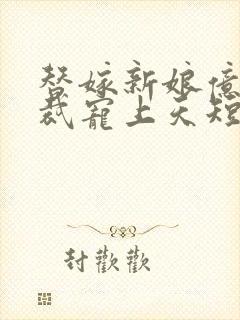 替嫁新娘億
裁寵上天短
封歡歡